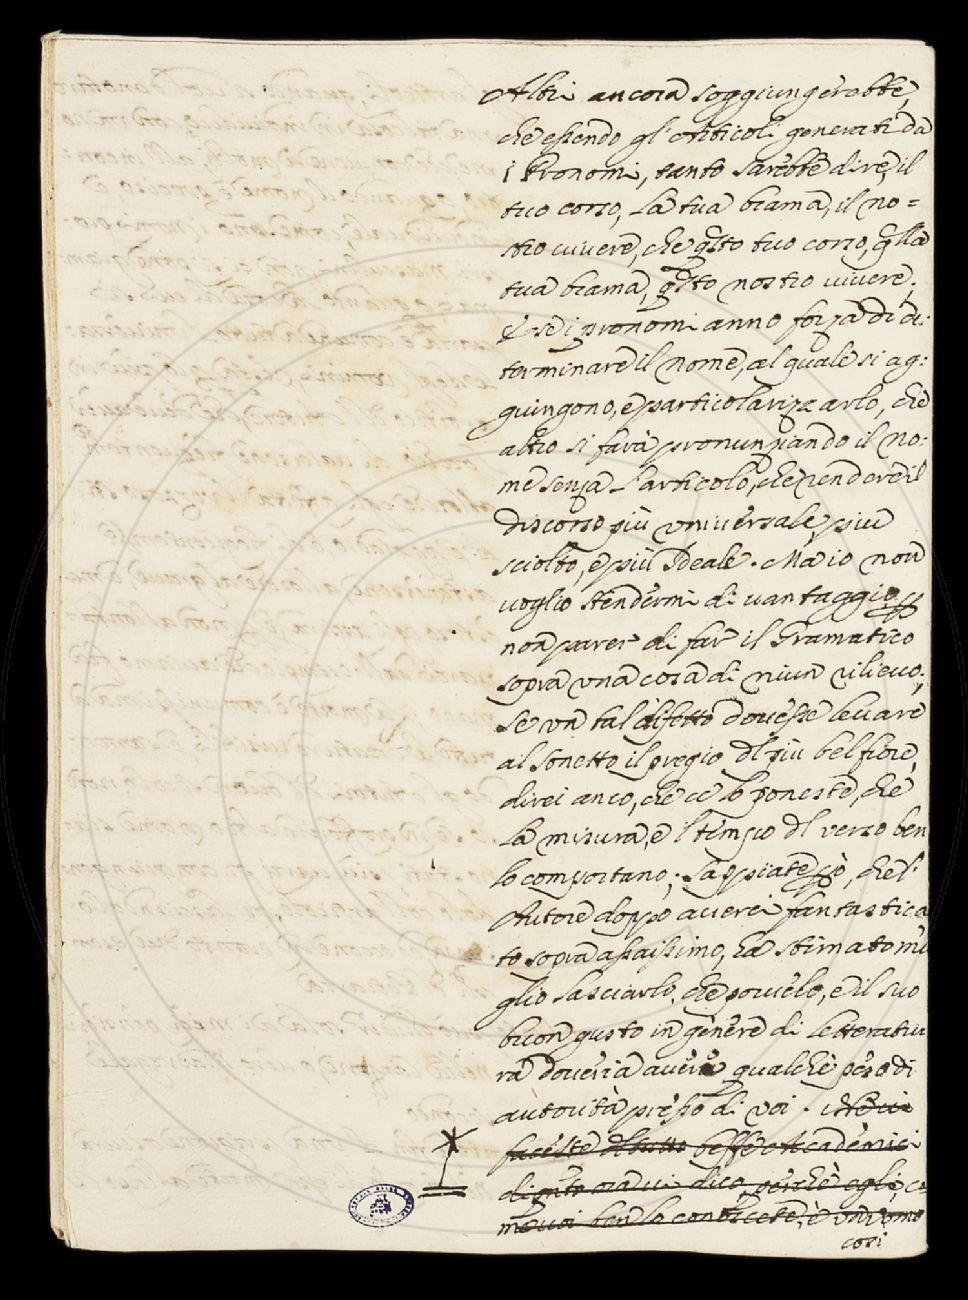 Altri ancora soggiungerebbe,
che essendo gl'Articoli generati da
i Pronomi, tanto sarebbe dire, il
tuo corso, la tua brama, il no=
stro vivere, che q.sto tuo corso, q.lla
tua brama, q.sto nostro vivere;
E se i pronomi anno forza di di:
terminare il nome, al quale si ag:
giungono, e particolarizzarlo, che
altro si farà pronunziando il no:
me senza l'articolo, che rendere il
discorso più universale, più
sciolto, e più Ideale. Ma io non
voglio stendermi di vantaggio p
non parer di far il Gramatico
sopra una cosa di niun rilievo;
Se un tal difetto dovesse levare
al Sonetto il pregio dl più bel fiore,
direi anco, che ce lo poneste, che
la misura, e 'l tempo dl verso ben
lo comportano; Sappiate però, che l'
Autore doppo averci fantastica
to sopra assaissimo, ha stimato me
glio lasciarlo, che porvelo, e il suo
buon gusto in genere di letteratu
ra doveria avere qualche peso di
autorità presso di voi. Ne vi
faceste beffe Accademici
di q.nto ora vi dico, perchè egli, co
me voi ben lo conoscete, è un uomo
così